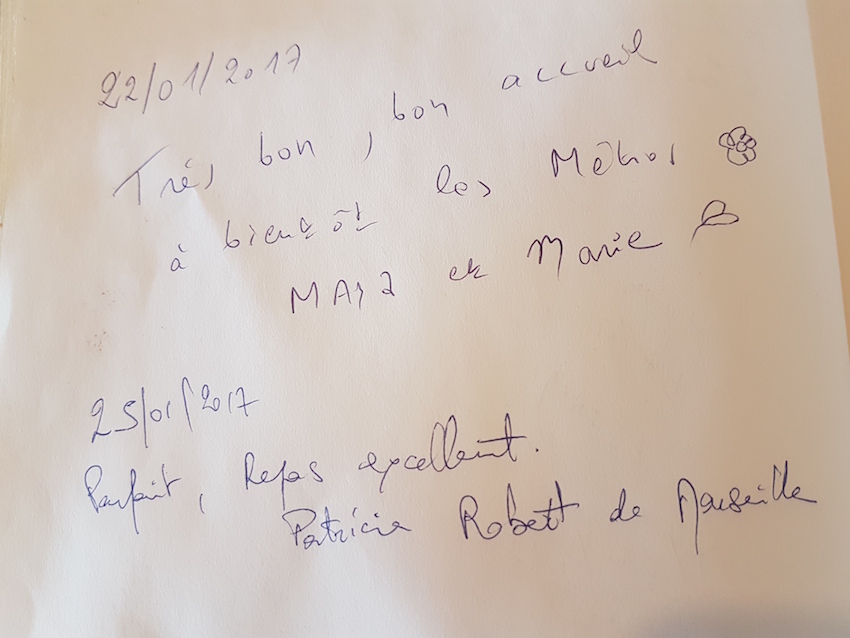 22/01/2017
Très bon, bon accueil
à bientôt les
et Marie
25/01/2017
Parfait, Repas excellent.
Patricia Robert de Marseille